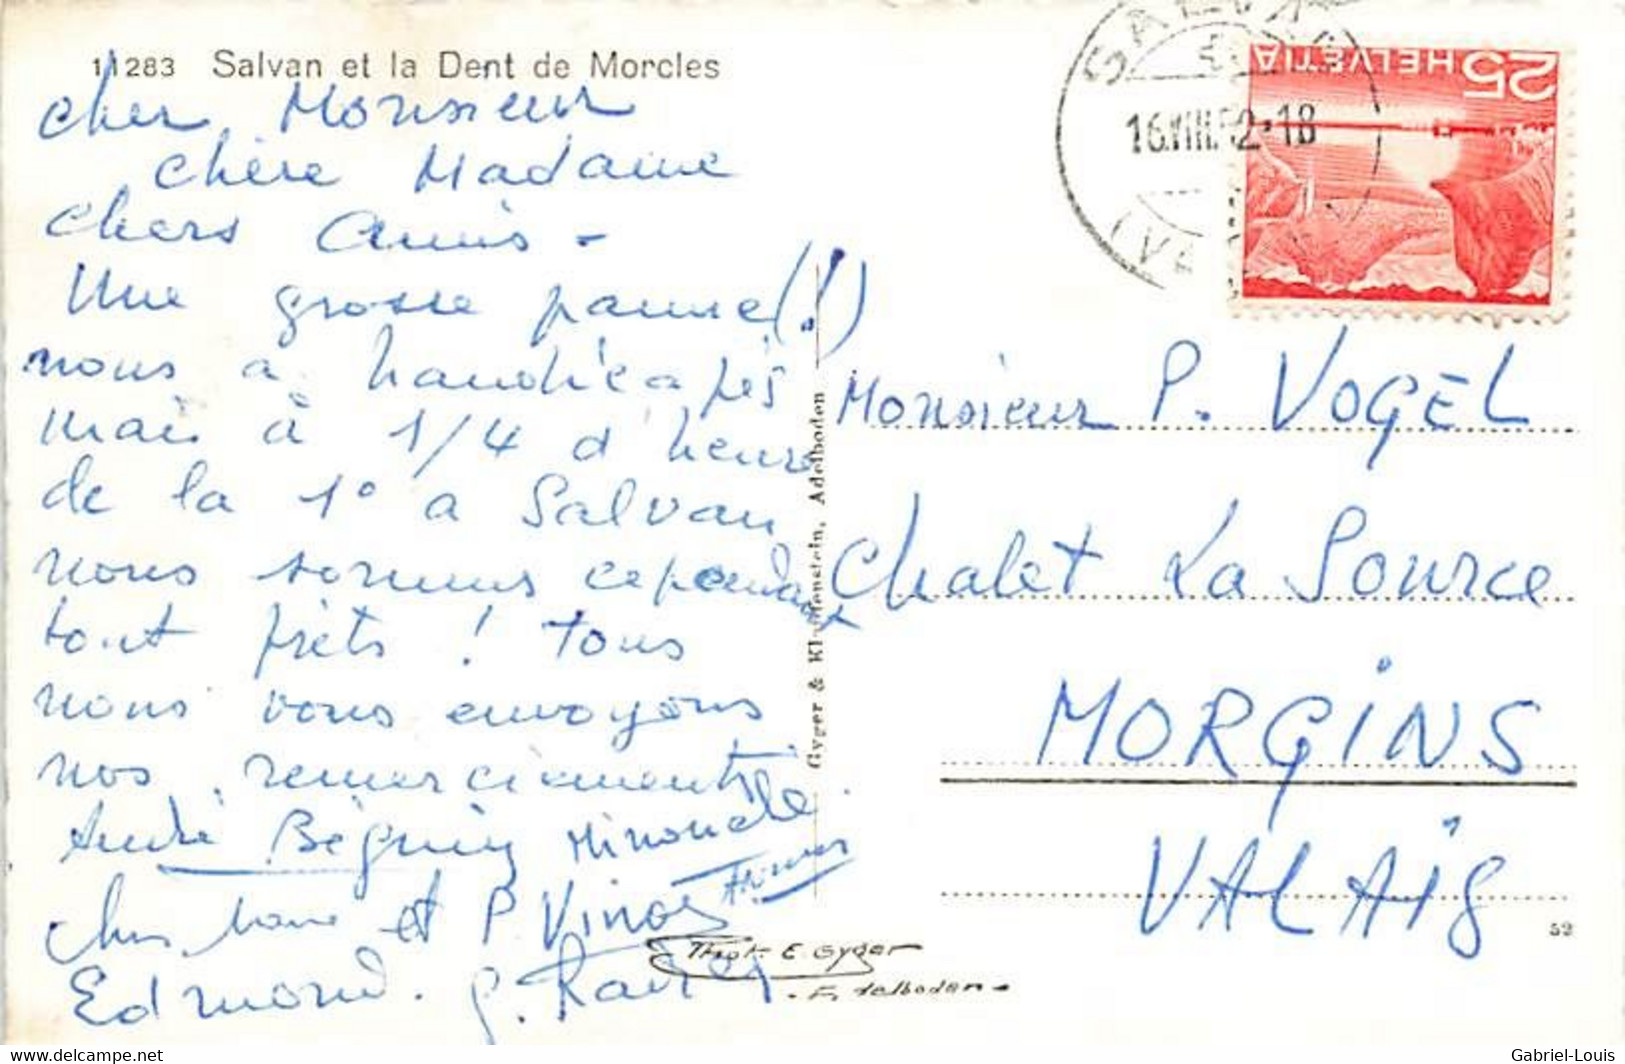 11283 Salvan et la Dent de Morcles
Cher Monsieur
Chère Madame
Chers Amis -
Une grosse panne (!)
nous a handicapés
mais à 1/4 d'heure
de la 1° a Salvan
nous sommes cependant
tout prêts ! Tous
nous vous envoyons
nos remerciements.
André Béguin Minouche
et P. Vinoy
Edmond. G.
Gyger & Klopfenstein, Adelboden
Phot. E. Gyger
- Adelboden -
SALVAN
16.VIII.52-18
(VALAIS)
HELVETIA 25
Monsieur P. VOGEL
Chalet La Source
MORGINS
VALAIS
52
www.delcampe.net
Gabriel-Louis